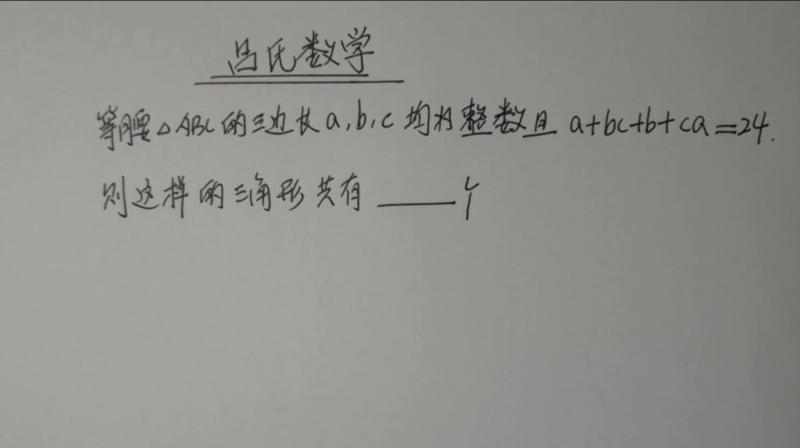 吕氏数学
等腰△ABC的三边长a,b,c均为整数且 a+bc+b+ca=24.
则这样的三角形共有____个